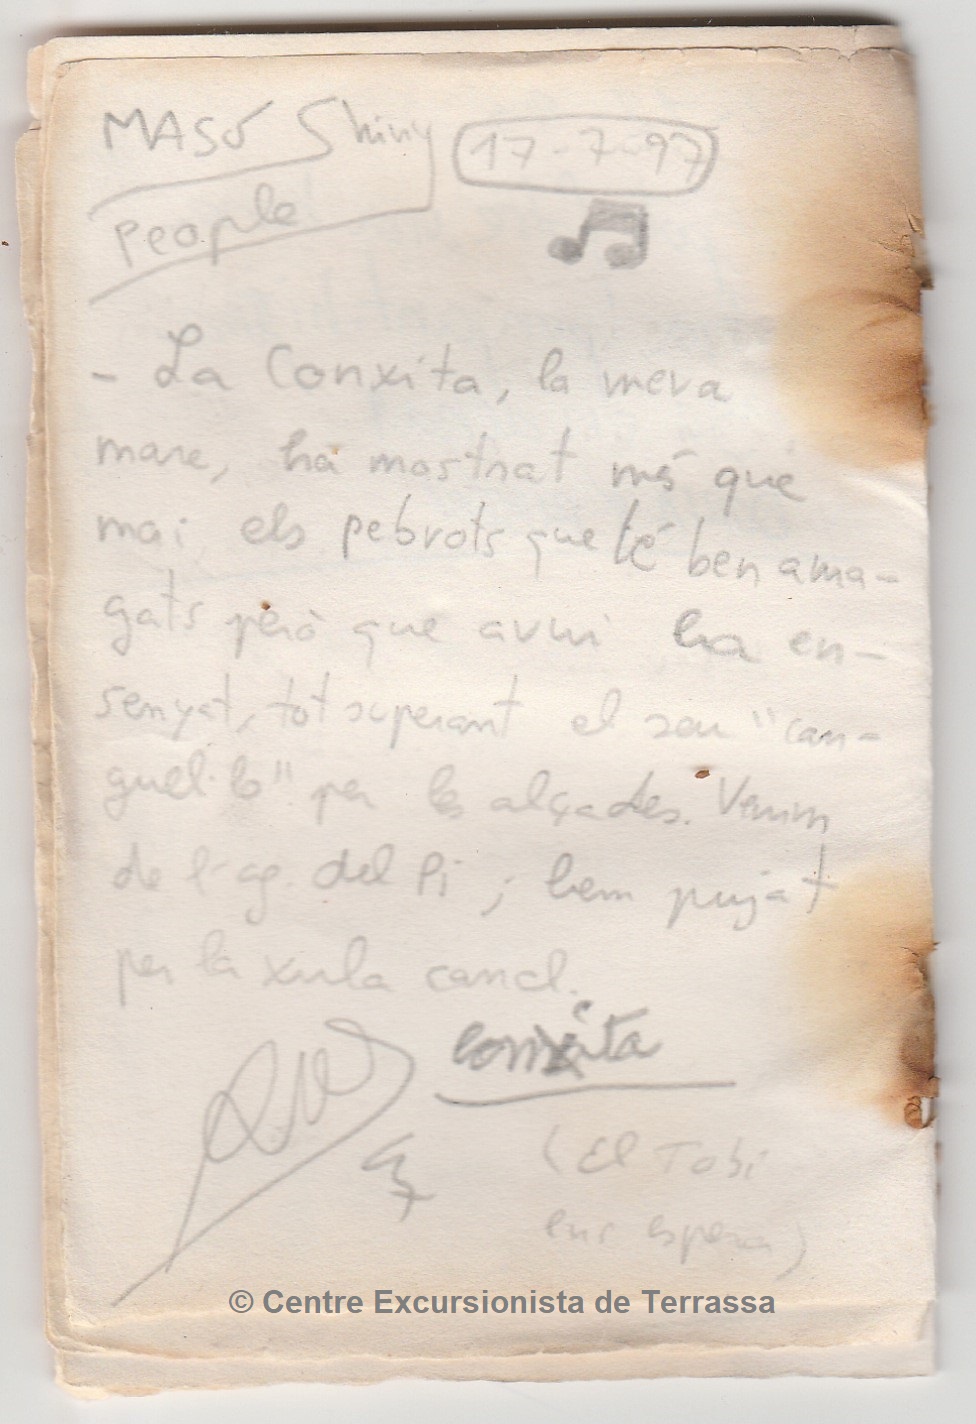 MASÓ Shiny 17-7-97
People
- La Conxita, la meva
mare, ha mostrat més que
mai els pebrots que té ben ama-
gats però que avui ha en-
senyat, tot superant el seu "can-
guel·lo" per les alçades. Venim
de l'ag. del Pi ; hem pujat
per la xula canal.
Conxita
(El Tobi
ens espera)
© Centre Excursionista de Terrassa